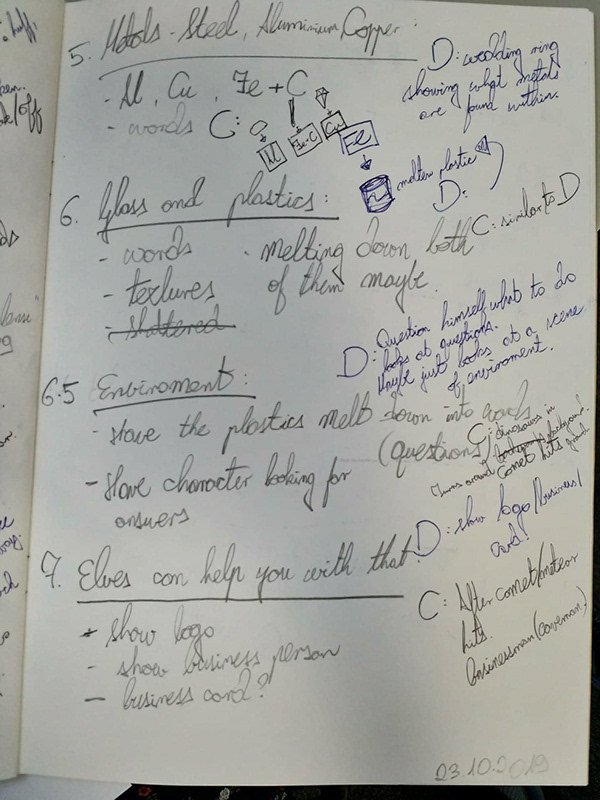 5. Metals - Steel, Aluminium, Copper:
- Al, Cu, Fe + C
- words
C:
Al
Fe+C
Cu
Fe
D: wedding ring
showing what metals
are found within.
molten plastic
D:
6. Glass and plastics:
- words
- textures
- shattered
- melting down both
of them maybe.
C: similar to D
D: Question himself what to do
looks at questions.
Maybe just looks at a scene
of enviroment.
6.5 Enviroment:
- Have the plastics melt down into words
(questions)
- Have character looking for
answers
C: dinosaurs in
background.
Turns around
Comet hits ground
7. Elves can help you with that.
- show logo
- show business person
- business card?
D: show logo/business/
card?
C: After comet/meteor
hits.
businessman (caveman)
23.10.2019